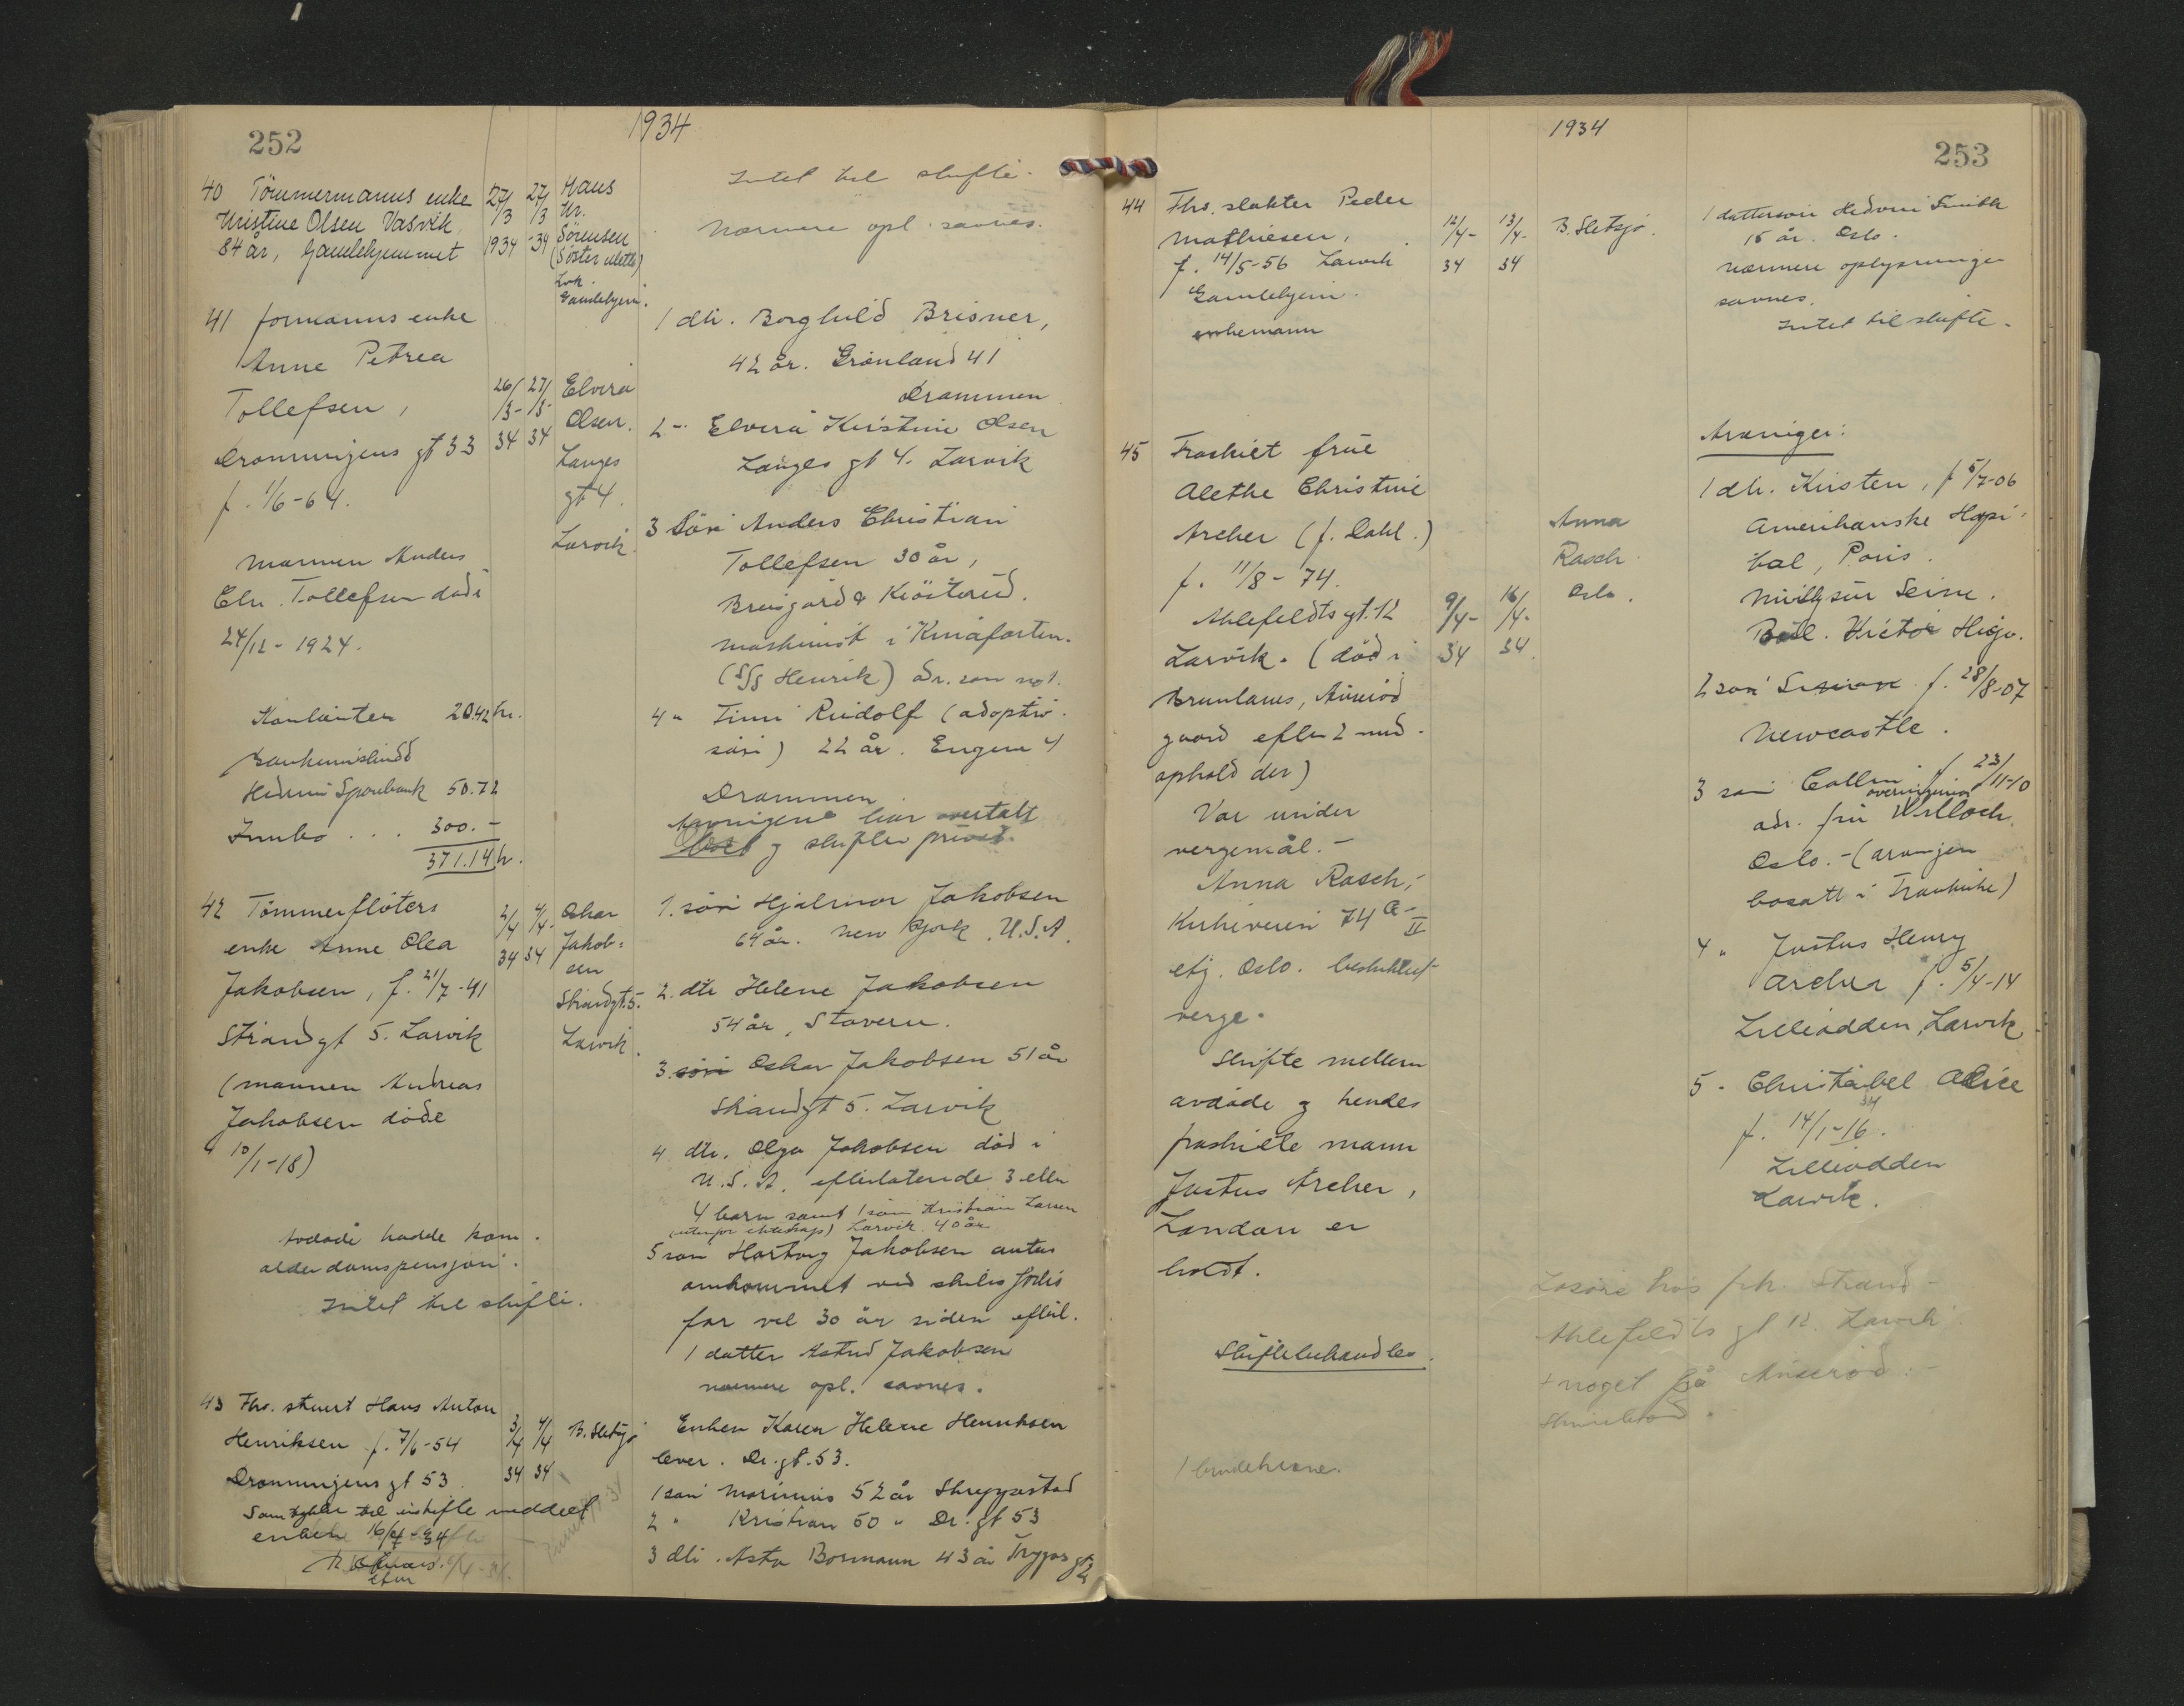 252
1934
40 Tömmermanns enke
Kristine Olsen Vasvik
84 år, Gamlehjemmet
27/3 1934
27/3 -34
Haus
Kr.
Sörensen
(Söster Mette)
Lvk.
Gamlehjem.
Intet til skifte.
Nærmere opl. savnes.
41 formanns enke
Anne Petrea
Tollefsen,
Dronningens gt 33
f. 1/6-64.
Mannen Anders
Chr. Tollefsen døde
24/12-1924.
Kontanter 20.42 kr.
Bankinnskudd
Hedrum Sparebank 50.72
Innbo ... 300.-
371.14 kr.
26/3-34
27/3-34
Elvira
Olsen.
Langes
gt 4.
Larvik.
1 dtr. Borghild Brisner,
42 år. Grønland 41
Drammen
2 - Elvira Kristine Olsen
Langes gt 4. Larvik
3 Sön Anders Christian
Tollefsen 30 år,
maskinist i Kinafarten.
(S/S Henrik) adr. som no 1.
4 " Finn Rudolf (adoptiv-
sön) 22 år. Engene 4
Drammen
Arvingene har overtatt
boet og skifter privat.
42 Tömmerflöters
enke Anne Olea
Jakobsen, f. 21/7-41
Strandgt 5. Larvik
(mannen Andreas
Jakobsen döde
10/1-18)
Avdøde hadde kom.
alderdomspensjon.
Intet til skifte.
2/4 34
4/4 34
Oskar
Jakob=
sen
Strandgt. 5.
Larvik.
1. sön Hjalmar Jakobsen
64 år. New York U.S.A.
2. dtr Helene Jakobsen
54 år, Stavern.
3. sön Oskar Jakobsen 51 år
Strandgt 5. Larvik
4 dtr. Olga Jakobsen död i
U.S.A. efterlatende 3 eller
4 barn samt 1 sön Kristian Larsen
(utenfor ekteskap) Larvik 40 år
5 sön Hartvig Jakobsen antas
omkommet ved skibsforlis
for vel 30 år siden efterl.
1 datter Astrid Jakobsen
nærmere opl. savnes.
43 Fhv. stuert Hans Anton
Henriksen f. 7/6-54
Dronningens gt 53
Samtykke til uskifte meddelt
enken 16/4-34
3/4 34
4/4 34
B. Sletsjø
Enken Karen Helene Henriksen
lever. Dr. gt. 53.
1 sön Marinius 52 år Skreppestad
2 " Kristian 50 " Dr. gt 53
3 dtr. Asta Bormann 43 år Trygves gt 2
253
1934
44 Fhv. slakter Peder
Mathiesen,
f. 14/5-56 Larvik
Gamlehjem.
enkemann
12/4-34
13/4-34
B. Sletsjø.
1 dattersön Hedvin Smith
15 år. Oslo.
Nærmere oplysninger
savnes.
Intet til skifte.
45 Fraskilt frue
Alethe Christine
Archer (f. Dahl.)
f. 11/8-74.
Ahlefeldts gt. 12
Larvik. (död i
Brunlanes, Anvik
gaard efter 2 mnd.
ophold der)
Var under
vergemål.-
Anna Rasch,
Kirkeveien 74 a II
etg. Oslo. beskikket
verge.
Skifte mellem
avdøde og hendes
fraskilte mann
Justus Archer,
London er
holdt.
Skiftebehandles.
9/4-34
16/4-34
Anna
Rasch
Oslo.
Arvinger:
1 dtr. Kirsten, f 5/7-06
Amerikanske Hospi-
tal, Paris.
Neuilly sur Seine.
Boul. Victor Hugo.
2 sön f. 28/8-07
Newcastle.
3 sön Collin f 23/11-10
adr. fru overingeniør Willoch,
Oslo.- (arvingen
bosatt i Frankrike)
4 " Justus Henry
Archer f. 5/4-14
Lilleodden, Larvik
5 - Christabel Alice
f. 14/1-16.
Lilleodden
Larvik.
Løsøre hos frk. Strand
Ahlefeldts gt 12. Larvik
+ noget på
1 brudekrone.